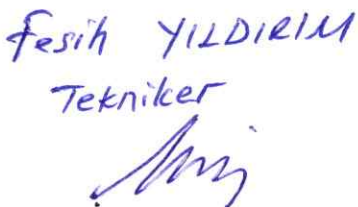 Fesih YILDIRIM
Tekniker